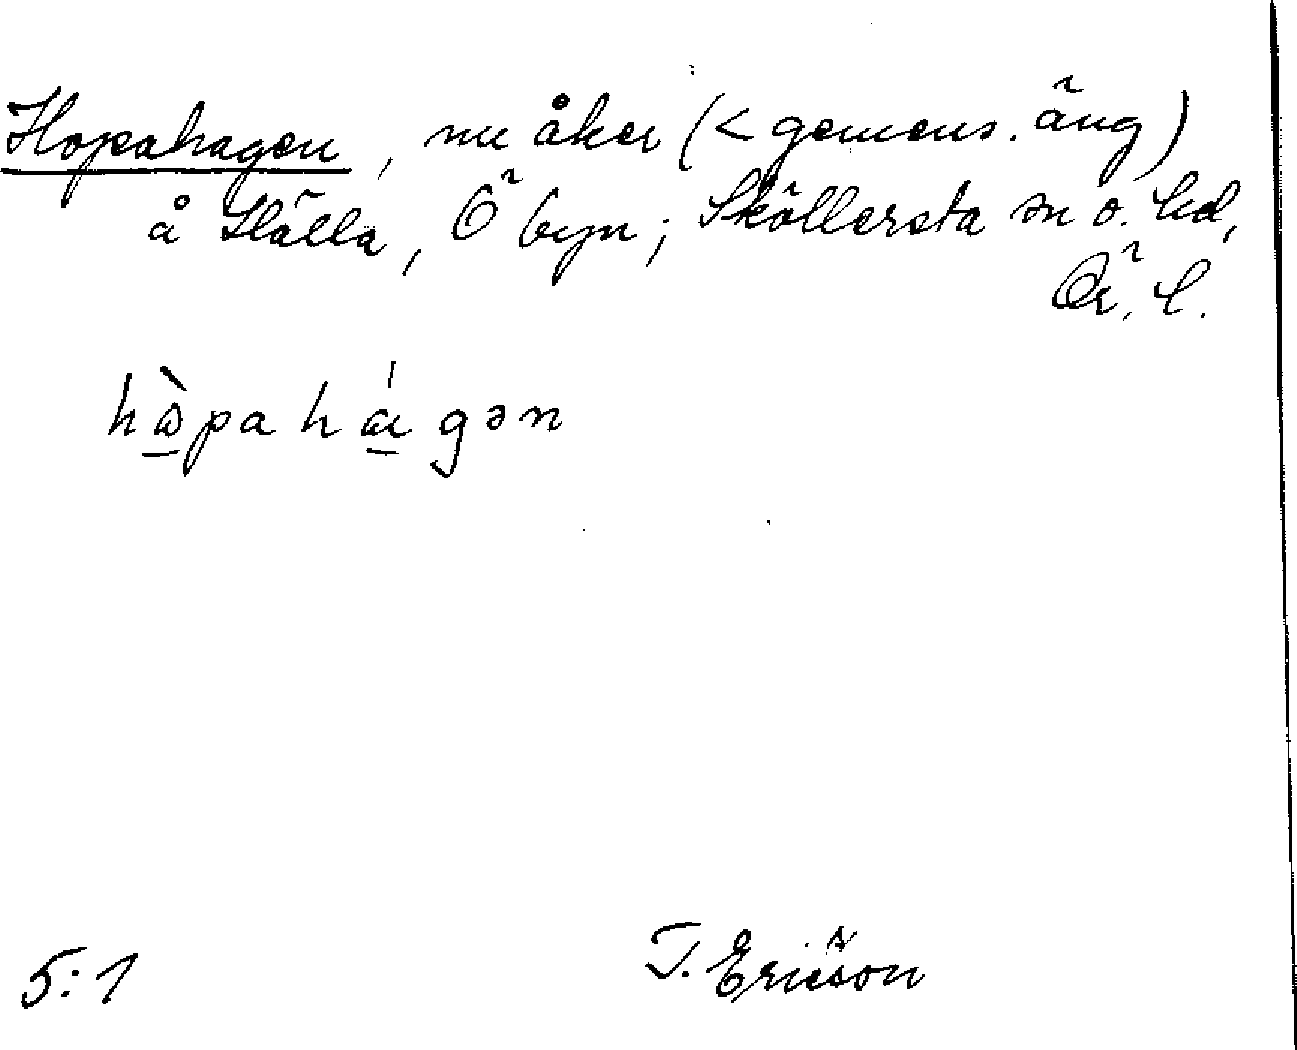 Hopahagen, nu åker (< gemens. äng)
å Hälla, Ö byn; Sköllersta sn o. hd,
Ör. l.
hòpahágən
5:1
T. Ericsson